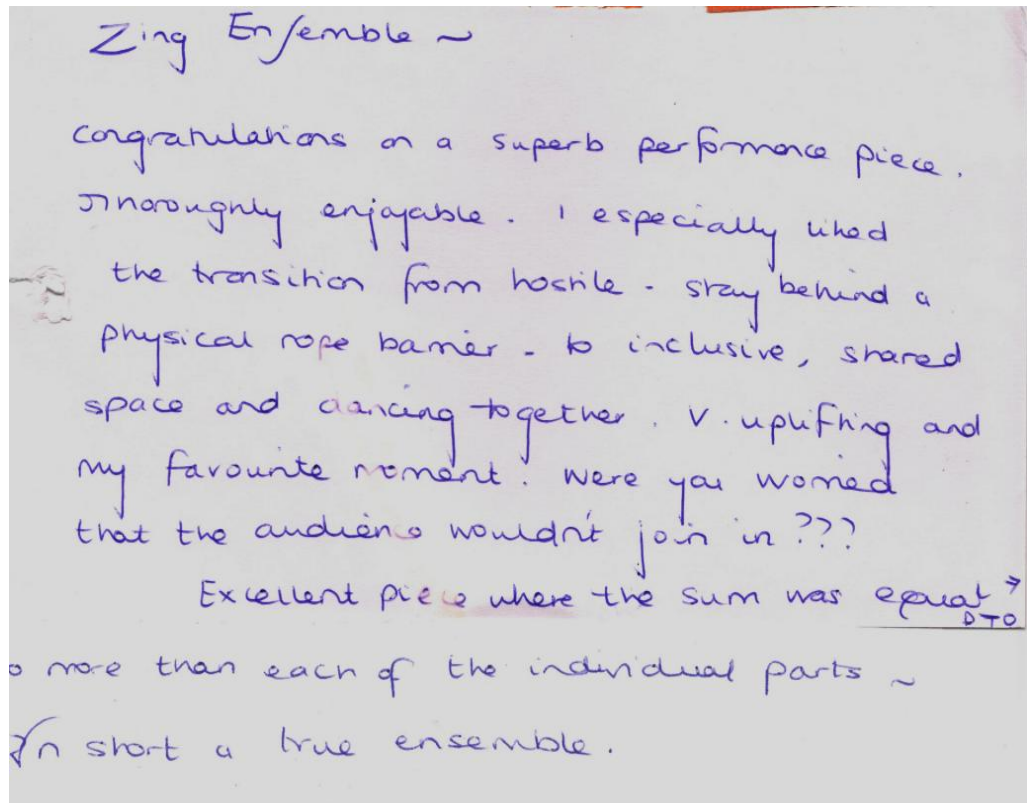 Zing Ensemble ~
Congratulations on a superb performance piece.
Thoroughly enjoyable. I especially liked
the transition from hostile - stay behind a
physical rope barrier - to inclusive, shared
space and dancing together. V. uplifting and
my favourite moment. Were you worried
that the audience wouldn't join in???
Excellent piece where the sum was equal →
PTO
o more than each of the individual parts ~
In short a true ensemble.